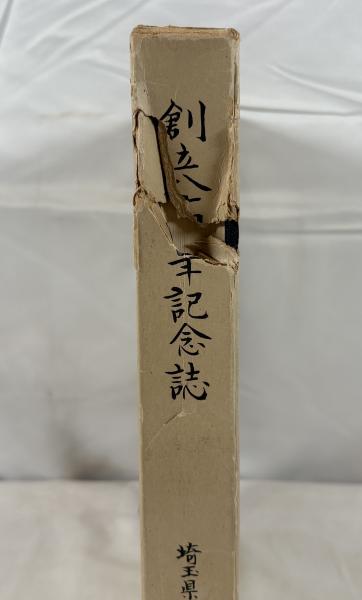 創立八 年記念誌
埼玉県